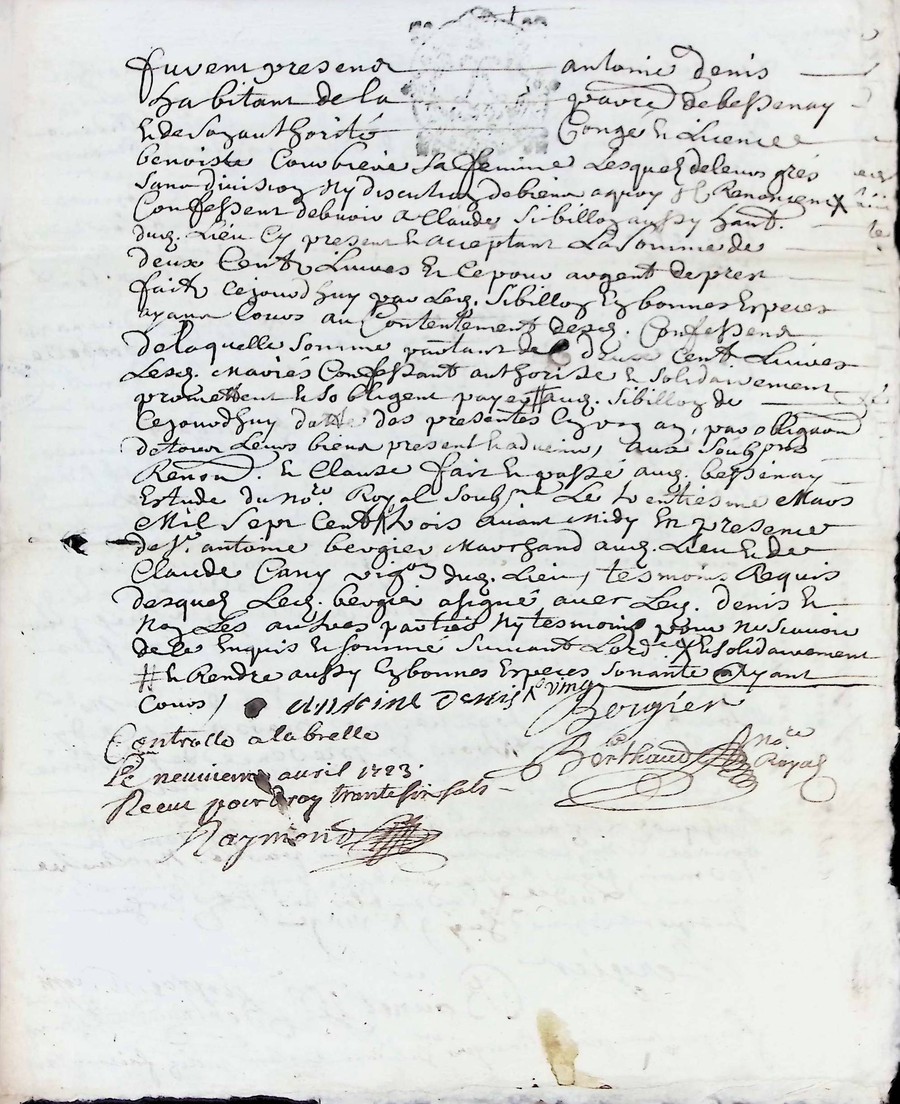 furent presens antoine denis
habitant de la parre de bessenay
et de son authorité Congé et Licence
benoiste Courbiere sa femme Lesquels de leurs grés
sans division ny discution de biens a quoy Renoncent X
Confessent debvoir a Claude Sibillon aussy habt.
dud. Lieu Cy present et acceptant La somme de
deux Cents Livres Et Ce pour argent de prest
fait Cejourdhuy par Led. Sibillon En bonnes Especes
ayant Cours au Contentement desd. Confessens
de laquelle somme partant de deux Cents Livres
Lesd. mariés Confessant authorisé et solidairement
promettent et sobligent payer # aud. Sibillon de
Cejourdhuy datte des presentes En un an, par obligaon
de tous Leurs biens present et advenir, aux Soubmons
Renon. et Clause fait et passé aud. bessenay
Estude du nore Royal soubne Le trentiesme Mars
Mil Sept Cent trois avant Midy En presence
de sr. antoine bergier Marchand aud. Lieu et de
Claude Cany vigon dud. Lieu, tesmoins Requis
desquels Led. bergier a signé avec Led. denis et
non Les autres parties ny tesmoins pour ne scavoir
de ce Enquis et sommé suivant Lordce X et solidairement
# et Rendre aussy En bonnes Especes sonante et ayant
Cours, antoine denis
Bergier
Berthaud nore Royal
Controllé a labrelle
Le neuvieme avril 1703
Receu pour droy trante six sols
Raymond